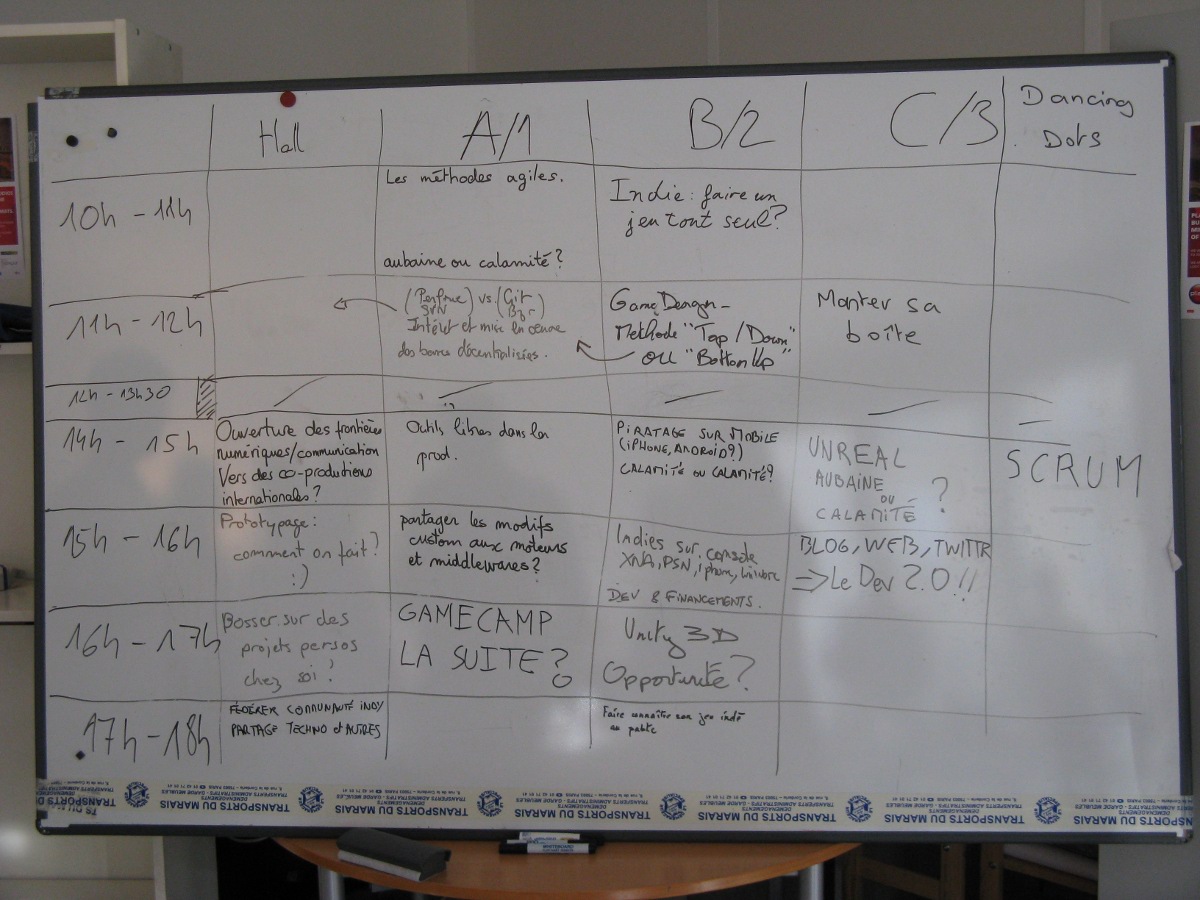 Hall
A/1
B/2
C/3
Dancing
Dots
10h - 11h
Les méthodes agiles.
aubaine ou calamité ?
Indie : faire un
jeu tout seul ?
11h - 12h
(Perforce) vs (Git
SVN Bzr)
Intérêt et mise en oeuvre
des bases décentralisées.
Game Design -
Méthode "Top/Down"
ou "Bottom Up"
Monter sa
boîte
12h - 13h30
14h - 15h
Ouverture des frontières
numériques/communication
Vers des co-productions
internationales ?
Outils libres dans la
prod.
PIRATAGE SUR MOBILE
(IPHONE, ANDROID?)
CALAMITÉ OU CALAMITÉ?
UNREAL
AUBAINE
OU
CALAMITÉ ?
SCRUM
15h - 16h
Prototypage :
comment on fait ?
:)
partager les modifs
custom aux moteurs
et middlewares ?
Indies sur console
XNA, PSN, iphone,
DEV & FINANCEMENTS.
BLOG, WEB, TWITTR
=> Le Dev 2.0 !!
16h - 17h
Bosser sur des
projets persos
chez soi !
GAMECAMP
LA SUITE ?
Unity 3D
Opportunité ?
17h - 18h
FÉDÉRER COMMUNAUTÉ INDY
PARTAGE TECHNO et AUTRES
Faire connaître son jeu indé
au public
TRANSPORTS DU MARAIS
DEMENAGEMENTS
TRANSFERTS ADMINISTRATIFS - GARDE MEUBLES